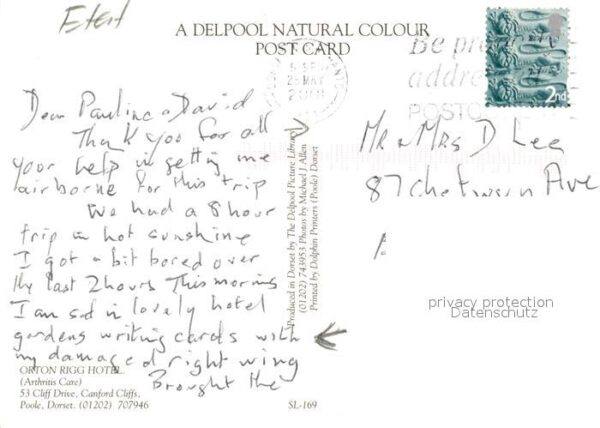 A DELPOOL NATURAL COLOUR
POST CARD
MAY
Be pr
addre
POSTC
2nd
Dear Pauline & David
Thank you for all
your help in getting me
airborne for this trip
We had a 8 hour
trip in hot sunshine
I got a bit bored over
the last 2 hours This morning
I am sat in lovely hotel
gardens writing cards with
my damaged right wing
Brought the
Mr & Mrs D Lee
87 Ave
Produced in Dorset by The Delpool Picture Library
(01202) 743953 Photos by Michael J. Allen
Printed by Dolphin Printers (Poole) Dorset
privacy protection
Datenschutz
ORTON RIGG HOTEL
(Arthritis Care)
53 Cliff Drive, Canford Cliffs,
Poole, Dorset. (01202) 707946
SL-169